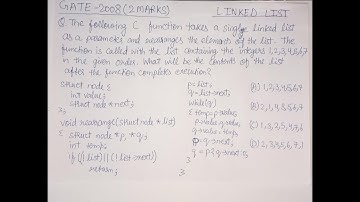 GATE-2008 (2 MARKS) LINKED LIST
Q The following C function takes a single Linked list
as a parameter and rearranges the elements of the list. The
function is called with the list containing the integers 1,2,3,4,5,6,7
in the given order. What will be the contents of the list
after the function completes execution?
struct node {
int value;
struct node *next;
};
void rearrange(struct node *list)
{ struct node *p, *q;
int temp;
if ((!list) || (!list→next))
return;
p=list;
q=list→next;
while(q)
{ temp=p→value
p→value=q→value
q→value=temp;
p=q→next;
q=p?q→next:0;
}
}
(A) 1,2,3,4,5,6,7
(B) 2,1,4,3,6,5,7
(C) 1,3,2,5,4,7,6
(D) 2,3,4,5,6,7,1